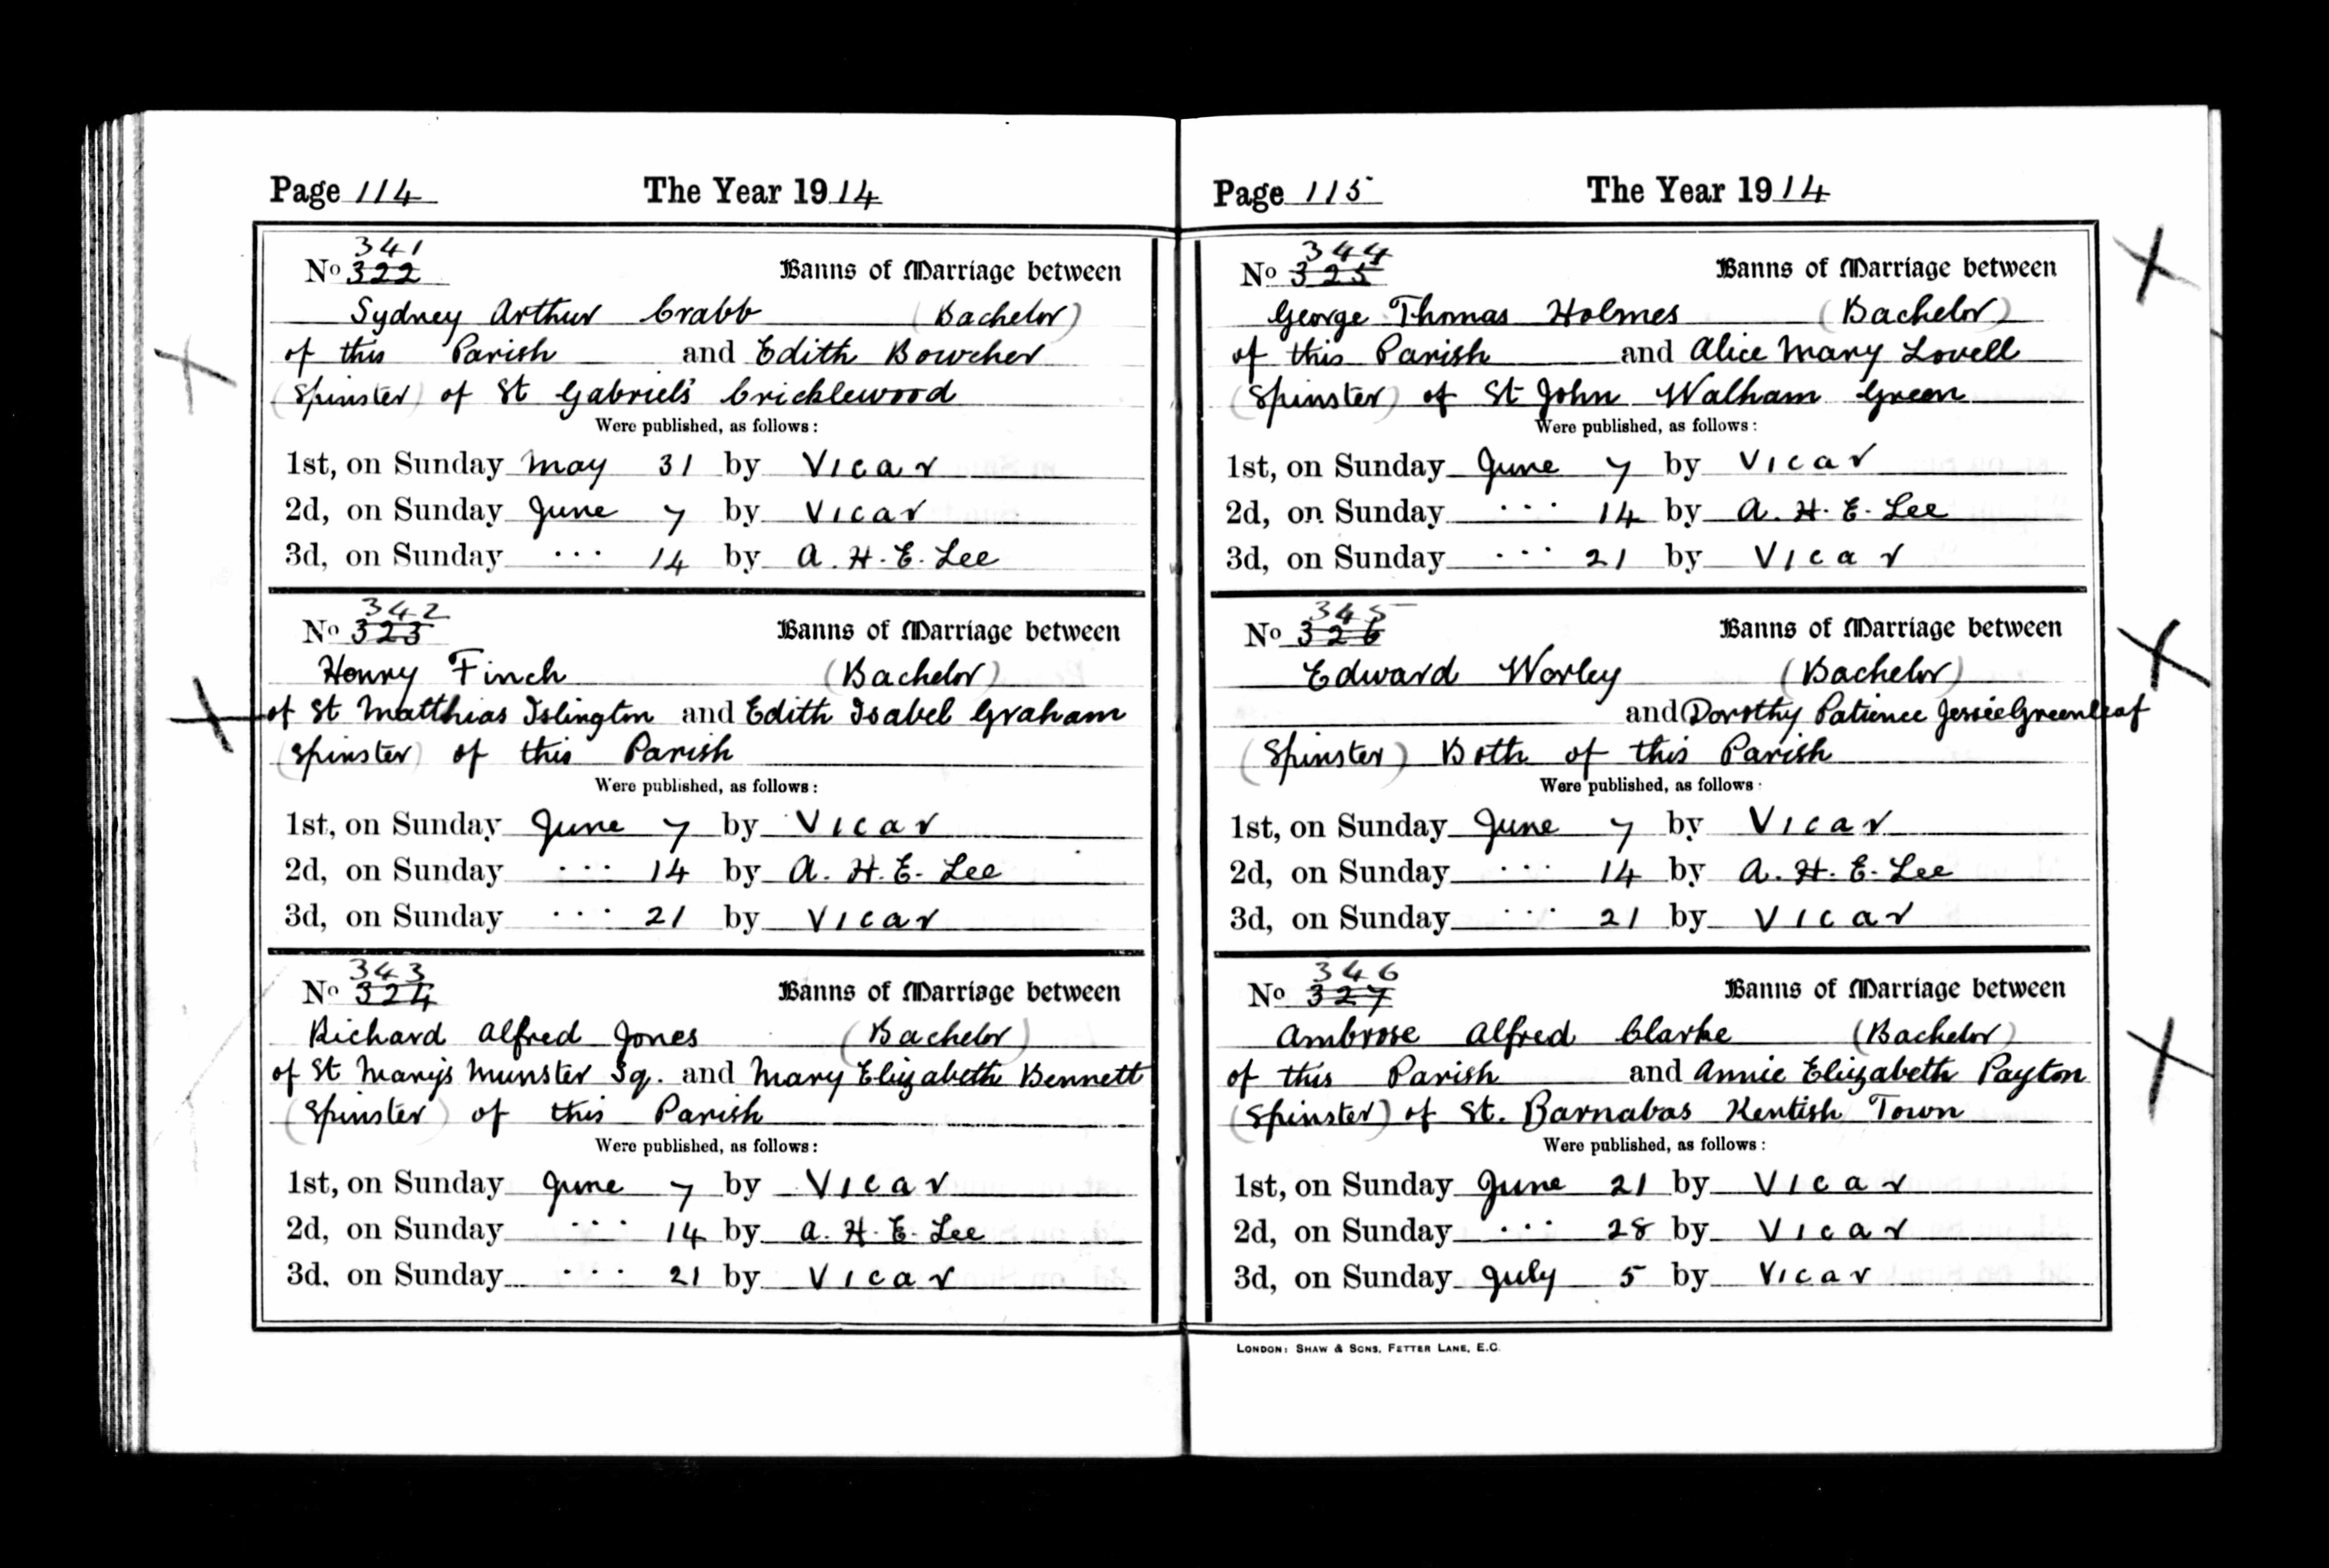 Page 114 The Year 1914
341
No 322 Banns of Marriage between
Sydney Arthur Crabb (Bachelor)
of this Parish and Edith Bowcher
(Spinster) of St Gabriel's Cricklewood
Were published, as follows:
1st, on Sunday May 31 by Vicar
2d, on Sunday June 7 by Vicar
3d, on Sunday ... 14 by A. H. E. Lee
342
No 323 Banns of Marriage between
Henry Finch (Bachelor)
of St Matthias Islington and Edith Isabel Graham
(Spinster) of this Parish
Were published, as follows:
1st, on Sunday June 7 by Vicar
2d, on Sunday ... 14 by A. H. E. Lee
3d, on Sunday ... 21 by Vicar
343
No 324 Banns of Marriage between
Richard Alfred Jones (Bachelor)
of St Mary's Munster Sq. and Mary Elizabeth Bennett
(Spinster) of this Parish
Were published, as follows:
1st, on Sunday June 7 by Vicar
2d, on Sunday ... 14 by A. H. E. Lee
3d, on Sunday ... 21 by Vicar
Page 115 The Year 1914
344
No 325 Banns of Marriage between
George Thomas Holmes (Bachelor)
of this Parish and Alice Mary Lovell
(Spinster) of St John Walham Green
Were published, as follows:
1st, on Sunday June 7 by Vicar
2d, on Sunday ... 14 by A. H. E. Lee
3d, on Sunday ... 21 by Vicar
345
No 326 Banns of Marriage between
Edward Worley (Bachelor)
and Dorothy Patience Jessie Greenleaf
(Spinster) Both of this Parish
Were published, as follows:
1st, on Sunday June 7 by Vicar
2d, on Sunday ... 14 by A. H. E. Lee
3d, on Sunday ... 21 by Vicar
346
No 327 Banns of Marriage between
Ambrose Alfred Clarke (Bachelor)
of this Parish and Annie Elizabeth Payton
(Spinster) of St. Barnabas Kentish Town
Were published, as follows:
1st, on Sunday June 21 by Vicar
2d, on Sunday ... 28 by Vicar
3d, on Sunday July 5 by Vicar
LONDON: SHAW & SONS, FETTER LANE, E.C.